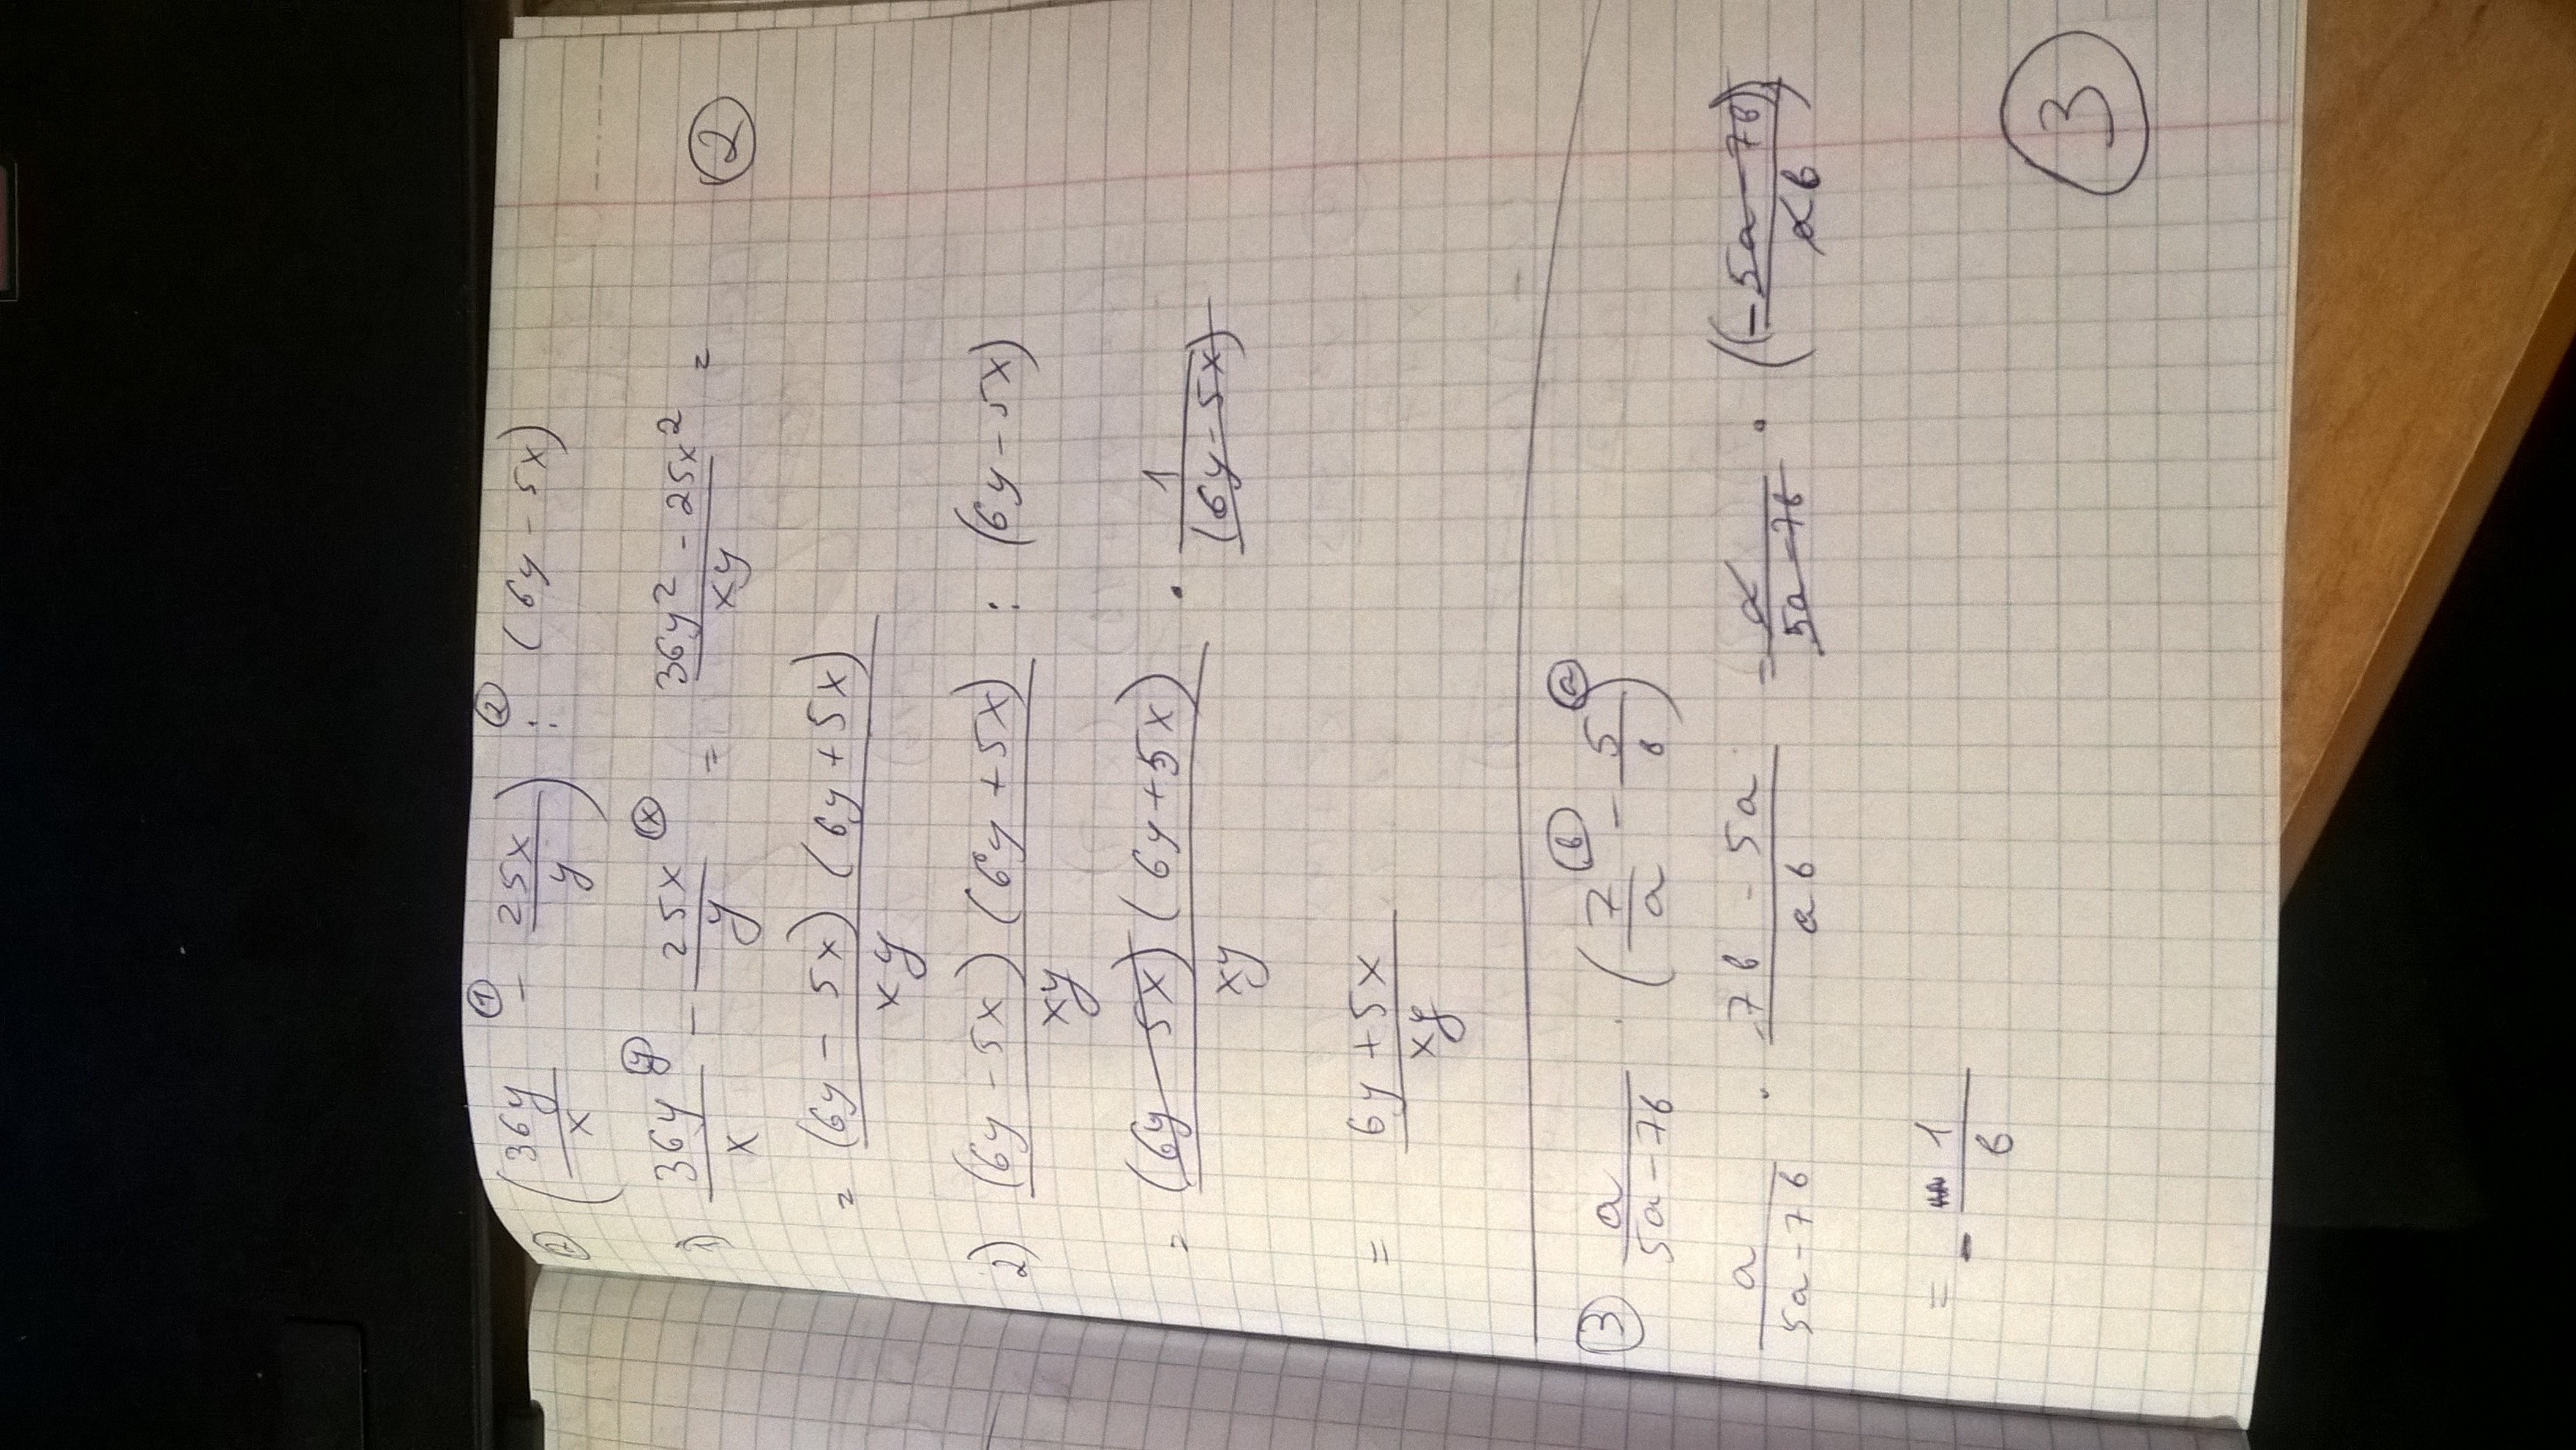 ② (36y/x ①- 25x/y) ②: (6y - 5x)
1) 36y/x ⓨ - 25x/y ⓧ = (36y² - 25x²)/xy =
②
= (6y - 5x)(6y + 5x)/xy
2) (6y - 5x)(6y + 5x)/xy : (6y - 5x)
= (6y - 5x)(6y + 5x)/xy · 1/(6y - 5x)
= (6y + 5x)/xy
③ a/(5a - 7b) · (7/a ⓑ - 5/b ⓐ)
a/(5a - 7b) · (7b - 5a)/ab = a/(5a - 7b) · (-(5a - 7b)/ab)
= - 1/b
③